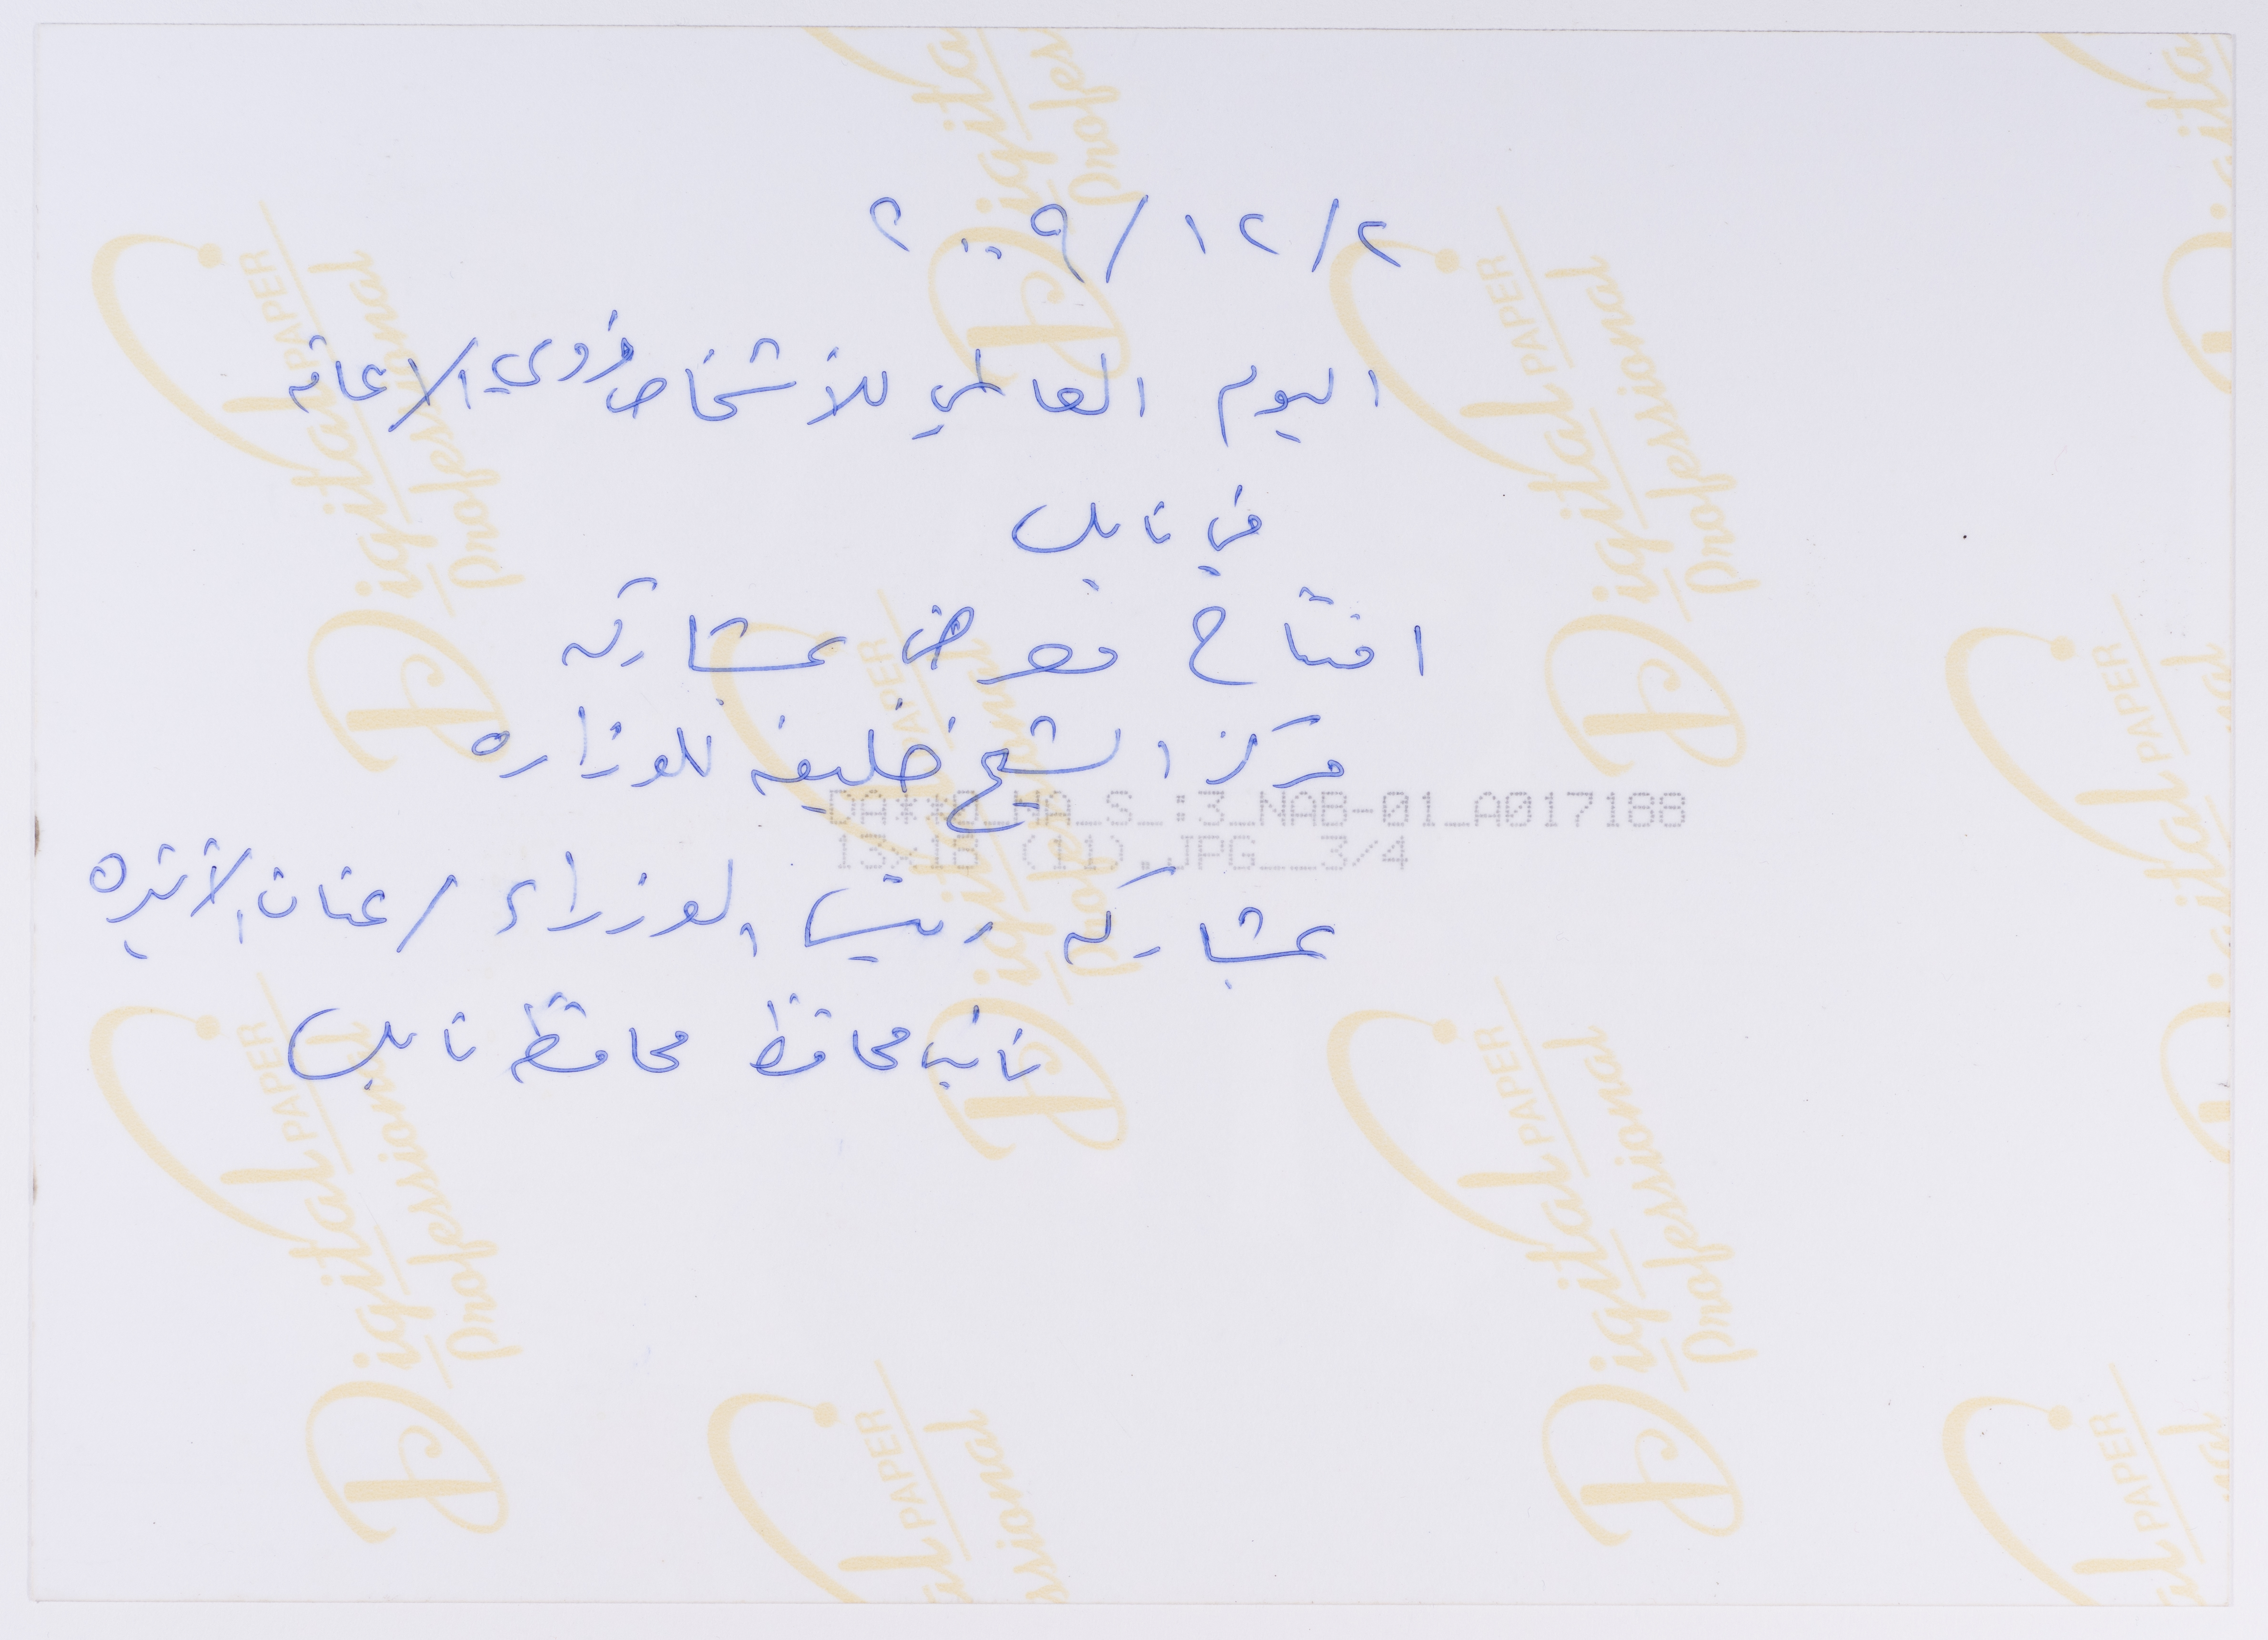 ٢/١٢/٢٠٠٩
اليوم العالمي للأشخاص ذوي الاعاقه
في نابلس
افتتاح معرض بمشاركه
مركز الشيخ خليفه للوزاره
DA**0_NA_S_:3_NAB-01_A017188
13x18 (11).JPG__3/4
بمشاركه رئيس الوزراء / عنان الأتيره
نائب محافظ محافظه نابلس
Digital PAPER
Professional